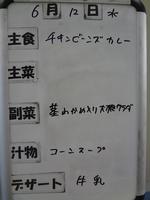 6月12日 水
主食 チキンビーンズカレー
主菜
副菜 茎わかめ入り大根サラダ
汁物 コーンスープ
デザート 牛乳